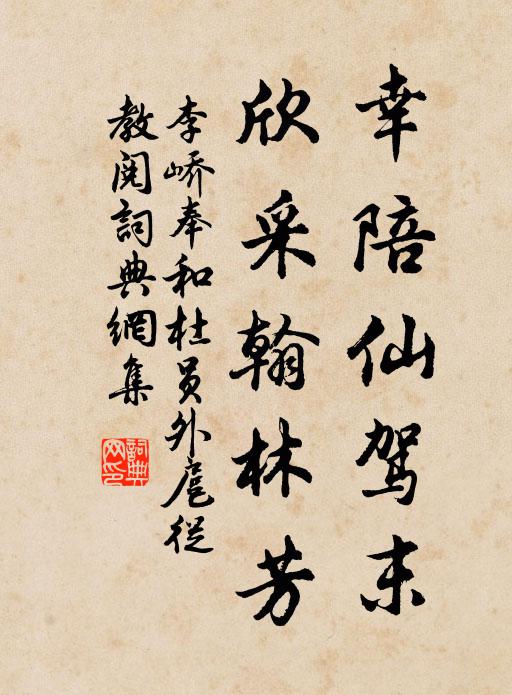 幸陪仙驾末
欣采翰林芳
李峤奉和杜员外扈從
教阅詞典網集
詞典网印